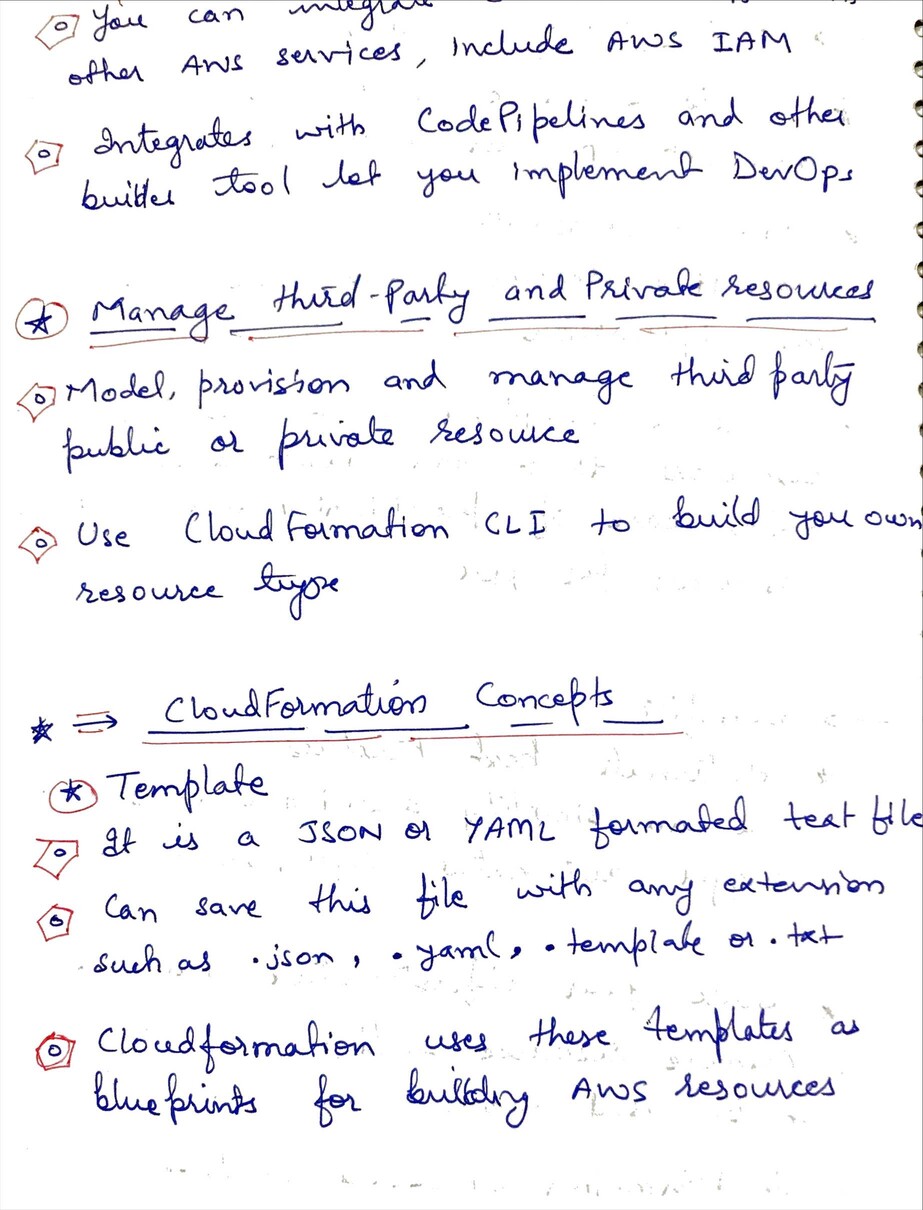 You can integrate
other AWS services, include AWS IAM
Integrates with CodePipelines and other
builder tool let you implement DevOps
Manage third-Party and Private resources
Model, provision and manage third party
public or private resource
Use CloudFormation CLI to build you own
resource type
⇒ CloudFormation Concepts
Template
It is a JSON or YAML formated text file
Can save this file with any extension
such as .json, .yaml, .template or .txt
Cloudformation uses these templates as
blueprints for building AWS resources